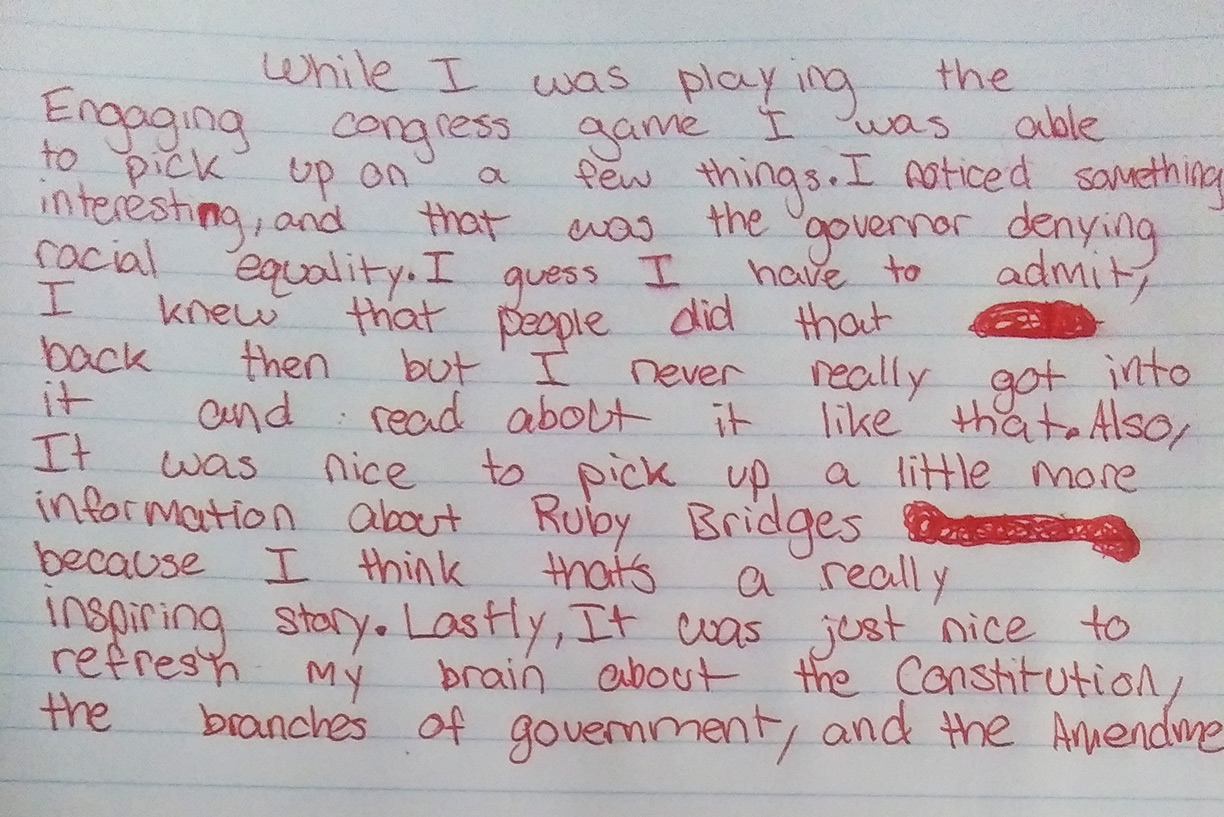 While I was playing the
Engaging congress game I was able
to pick up on a few things. I noticed something
interesting, and that was the governor denying
racial equality. I guess I have to admit,
I knew that people did that
back then but I never really got into
it and read about it like that. Also,
It was nice to pick up a little more
information about Ruby Bridges
because I think that's a really
inspiring story. Lastly, It was just nice to
refresh my brain about the Constitution,
the branches of government, and the Amendme